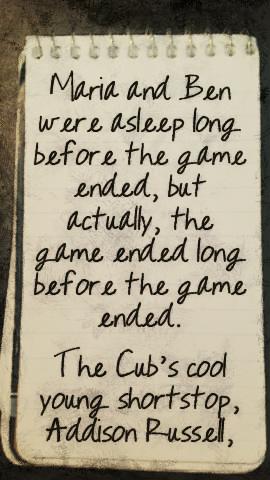 Maria and Ben
were asleep long
before the game
ended, but
actually, the
game ended long
before the game
ended.
The Cub's cool
young shortstop,
Addison Russell,